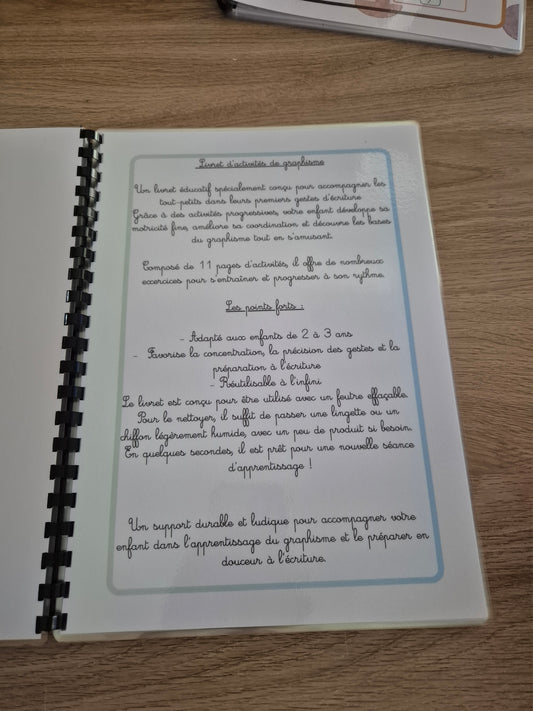 Livret d'activités de graphisme
Un livret éducatif spécialement conçu pour accompagner les
tout-petits dans leurs premiers gestes d'écriture
Grâce à des activités progressives, votre enfant développe sa
motricité fine, améliore sa coordination et découvre les bases
du graphisme tout en s'amusant.
Composé de 11 pages d'activités, il offre de nombreux
exercices pour s'entraîner et progresser à son rythme.
Les points forts :
- Adapté aux enfants de 2 à 3 ans
- Favorise la concentration, la précision des gestes et la
préparation à l'écriture
- Réutilisable à l'infini
Le livret est conçu pour être utilisé avec un feutre effaçable.
Pour le nettoyer, il suffit de passer une lingette ou un
chiffon légèrement humide, avec un peu de produit si besoin.
En quelques secondes, il est prêt pour une nouvelle séance
d'apprentissage !
Un support durable et ludique pour accompagner votre
enfant dans l'apprentissage du graphisme et le préparer en
douceur à l'écriture.